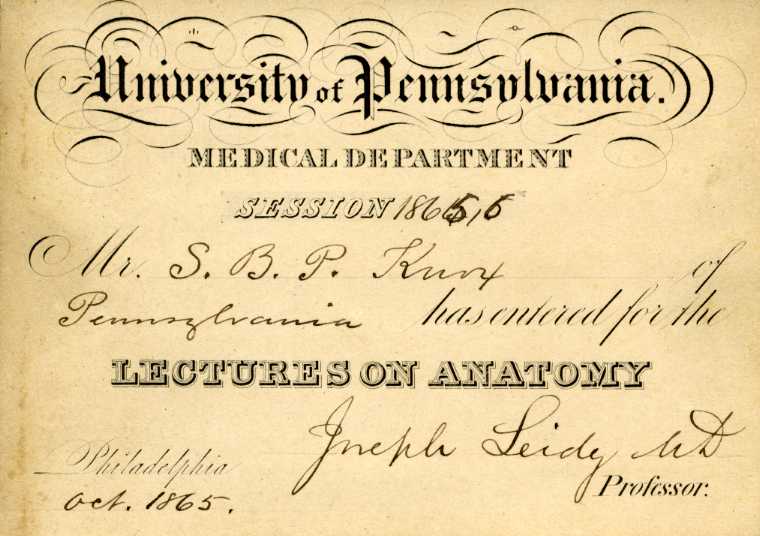 University of Pennsylvania.
MEDICAL DEPARTMENT
SESSION 1865,6
Mr. S. B. P. Knox of
Pennsylvania has entered for the
LECTURES ON ANATOMY
Joseph Leidy MD
Professor.
Philadelphia
Oct. 1865.